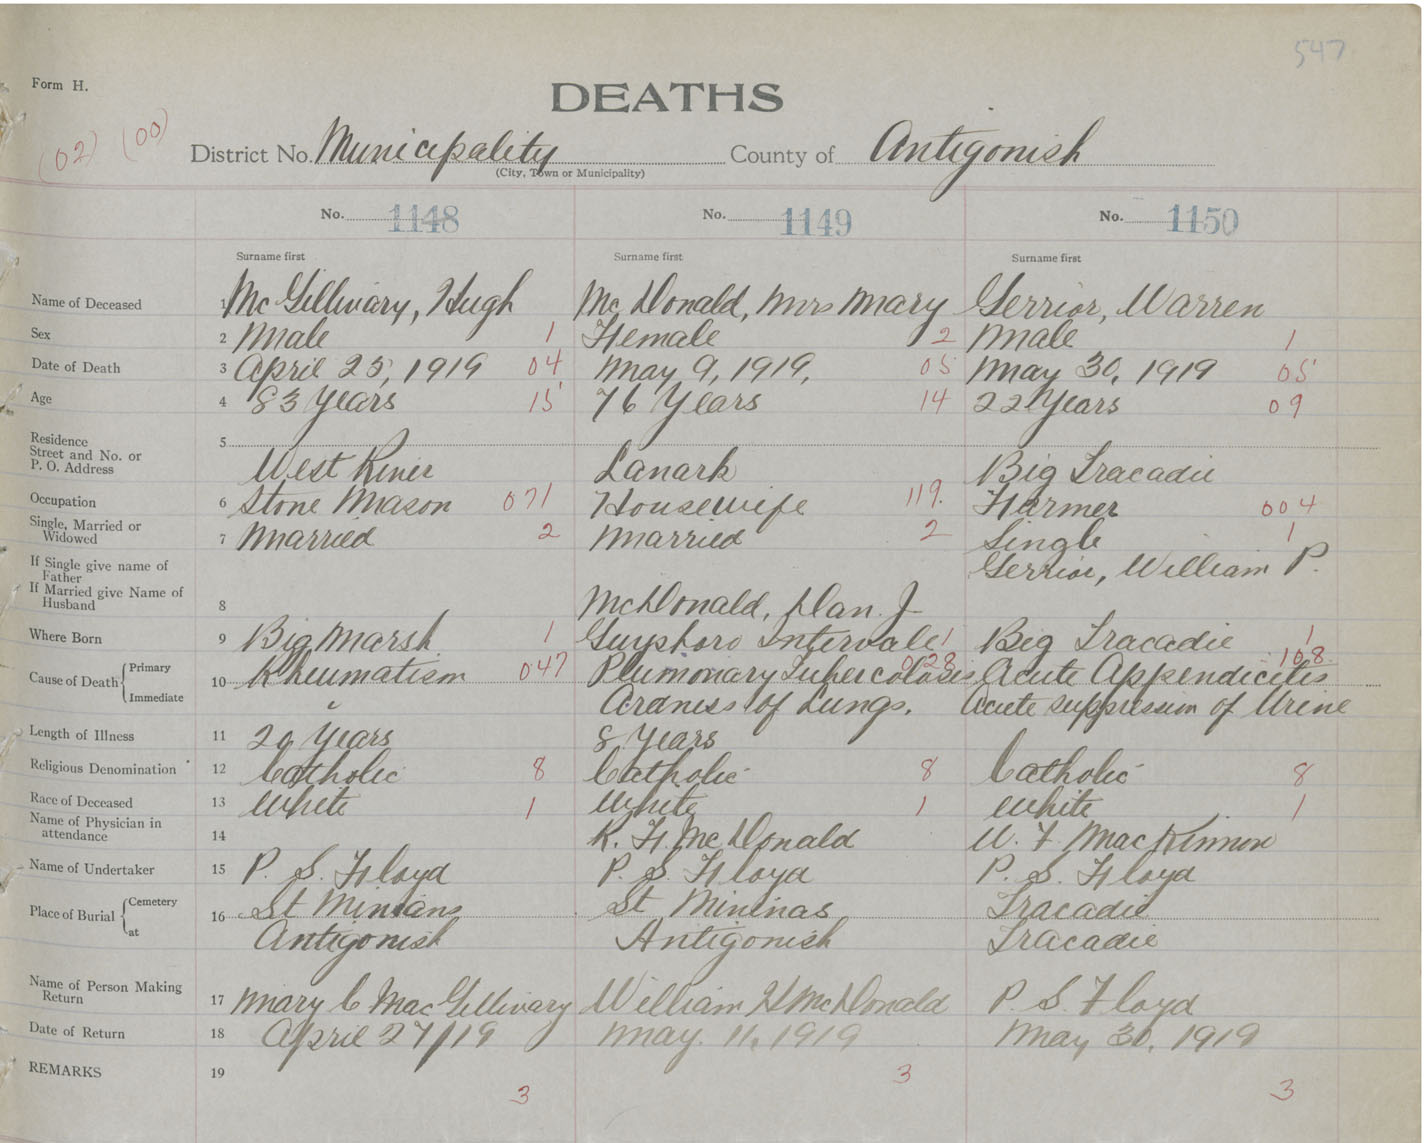 547
Form H.
DEATHS
(02) (00)
District No. Municipality County of Antigonish
(City, Town or Municipality)
No. 1148 No. 1149 No. 1150
Surname first Surname first Surname first
Name of Deceased 1 McGillivary, Hugh McDonald, Mrs Mary Gerrior, Warren
Sex 2 Male 1 Female 2 Male 1
Date of Death 3 April 25, 1919 04 May 9, 1919, 05 May 30, 1919 05
Age 4 83 Years 15 76 Years 14 22 Years 09
Residence 5
Street and No. or
P. O. Address West River Lanark Big Tracadie
Occupation 6 Stone Mason 071 Housewife 119. Farmer 004
Single, Married or
Widowed 7 Married 2 Married 2 Single 1
If Single give name of
Father Gerrior, William P.
If Married give Name of
Husband 8 McDonald, Dan. J
Where Born 9 Big Marsh 1 Guysboro Intervale 1 Big Tracadie 1
Cause of Death Primary 10 Rheumatism 047 Plumonary Tubercolosis 028 Acute Appendicitis 108.
Immediate of Lungs. Acute suppression of Urine
Length of Illness 11 20 Years 8 Years
Religious Denomination 12 Catholic 8 Catholic 8 Catholic 8
Race of Deceased 13 White 1 White 1 White 1
Name of Physician in
attendance 14 R. F. McDonald W. F. MacKinnon
Name of Undertaker 15 P. S. Floyd P. S. Floyd P. S. Floyd
Place of Burial Cemetery 16 St Minians St Mininas Tracadie
at Antigonish Antigonish Tracadie
Name of Person Making
Return 17 Mary C MacGillivary William H McDonald P. S. Floyd
Date of Return 18 April 27/19 May. 11, 1919 May 30, 1919
REMARKS 19
3 3 3